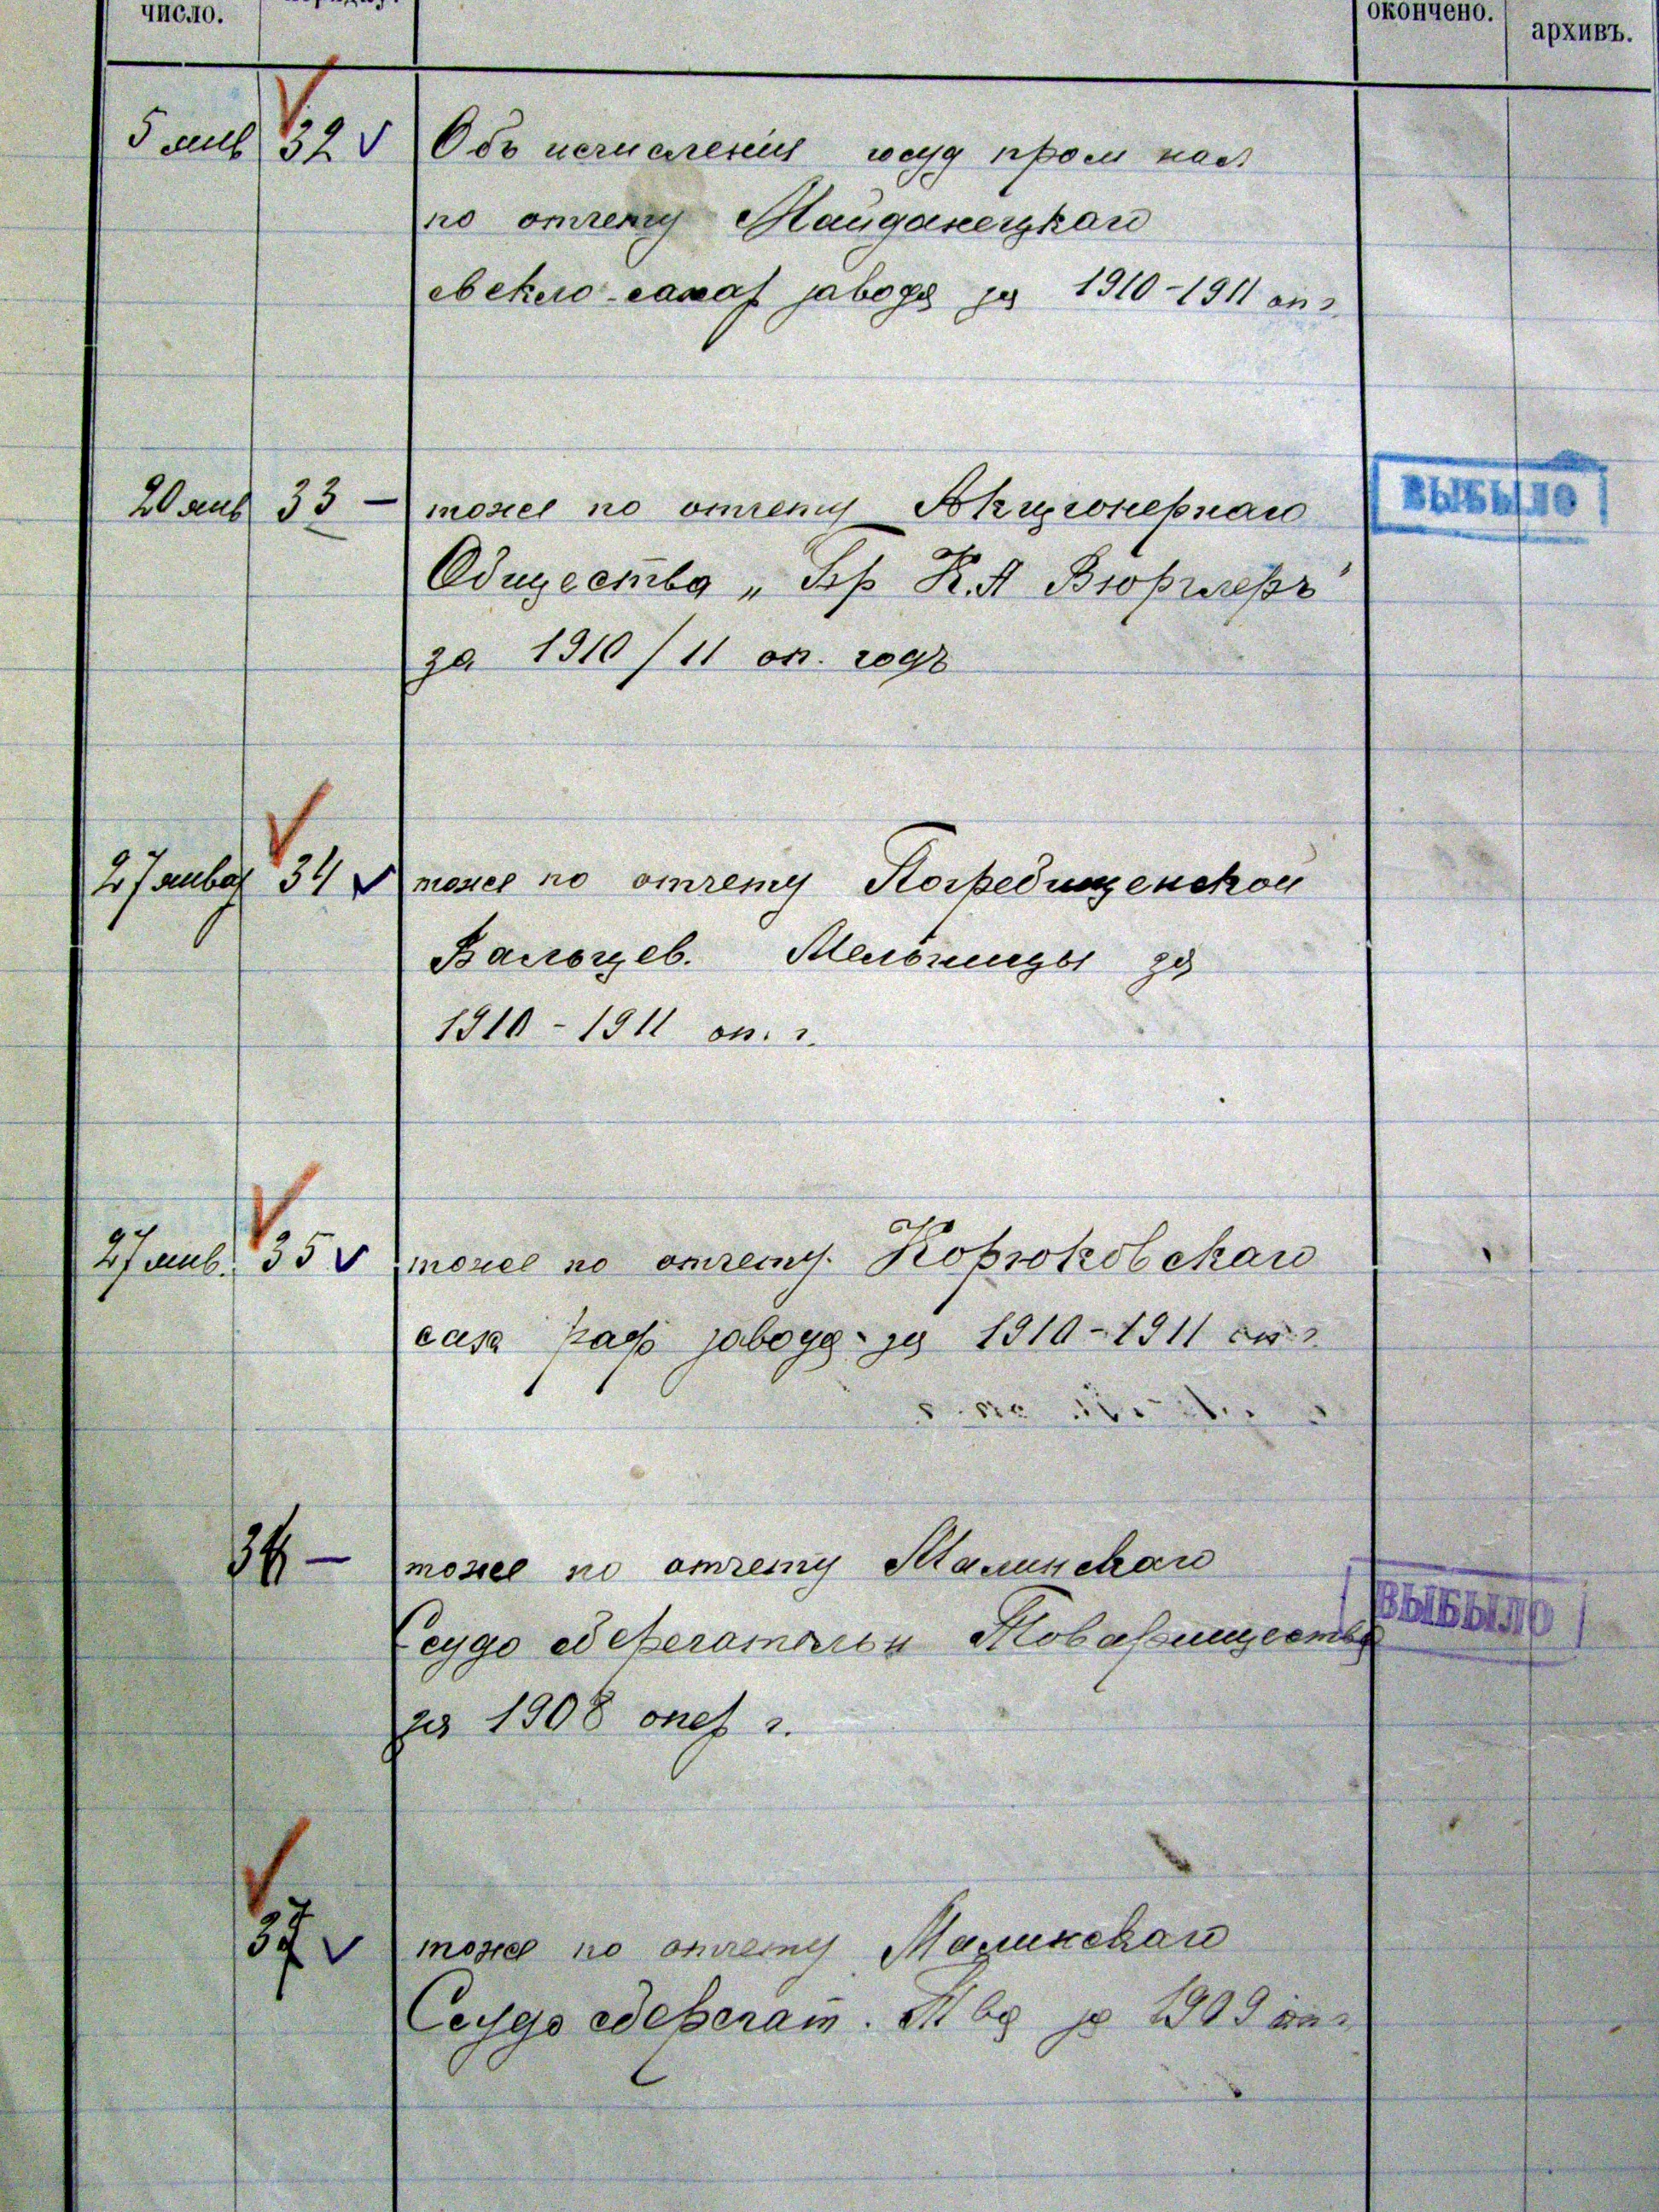 число.
окончено.
архивъ.
5 янв 32 Объ исчисленiи госуд пром нал
по отчету Майданецкаго
свекло-сахар завода за 1910-1911 оп г.
20 янв 33 – тоже по отчету Акцiонернаго
ВЫБЫЛО
Общества „Бр К.А Вюрглеръ"
за 1910/11 оп. годъ
27 январ 34 тоже по отчету Погребищенской
Вальцев. Мельницы за
1910-1911 оп. г.
27 янв. 35 тоже по отчету Корюковскаго
сах раф завода за 1910-1911 оп г.
36 – тоже по отчету Малинскаго
Ссудо сберегательн Товарищества
ВЫБЫЛО
за 1908 опер г.
37 тоже по отчету Малинскаго
Ссудо сберегат. Т ва за 1909 оп г